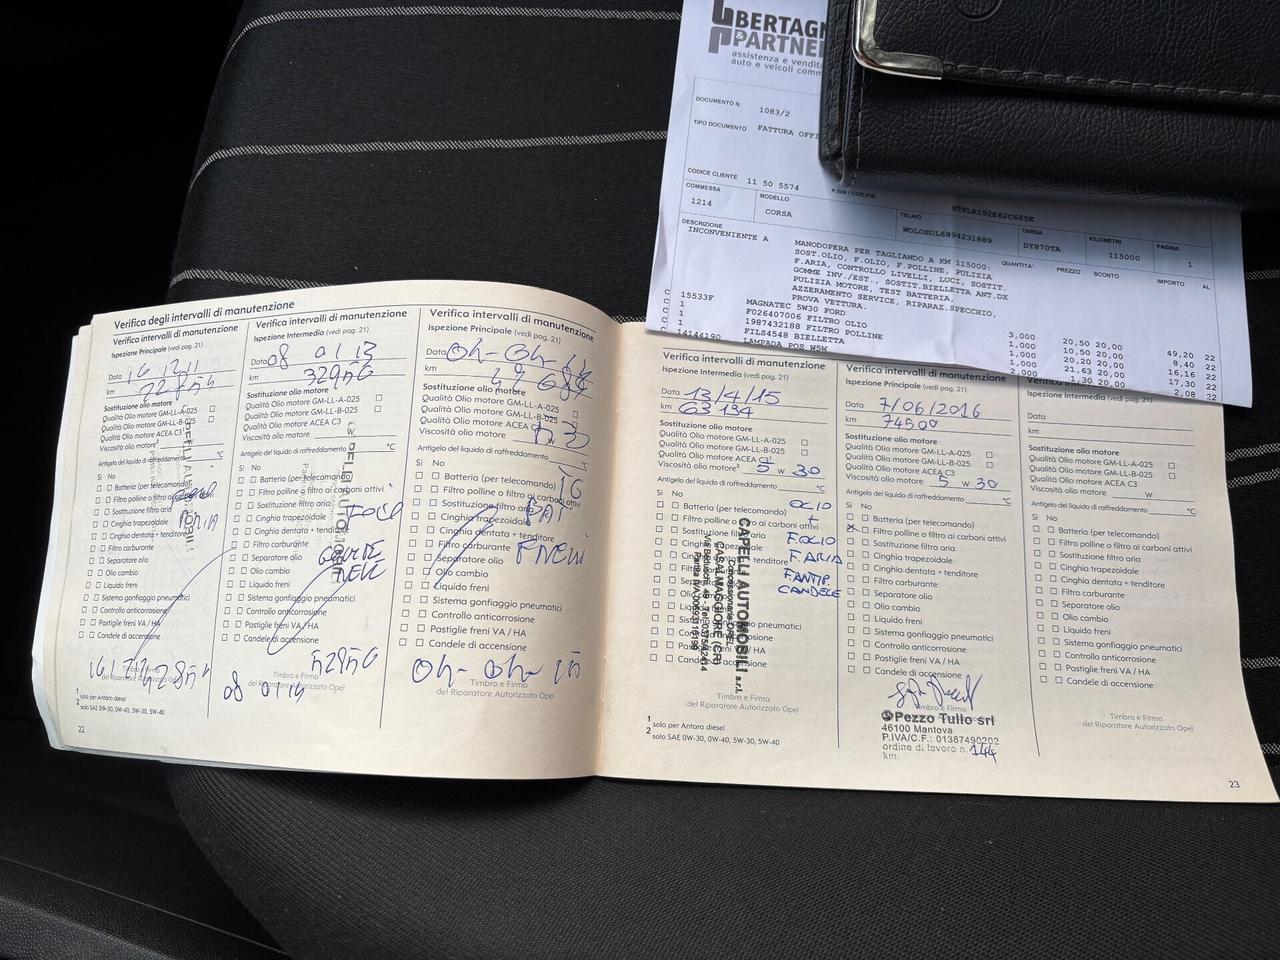 BERTAGN
& PARTNER
assistenza e vendita
auto e veicoli comm
DOCUMENTO N. 1083/2
TIPO DOCUMENTO FATTURA OFFI
CODICE CLIENTE 11 50 5574
P.IVA / COD.FIS.
COMMESSA MODELLO TELAIO TARGA KILOMETRI PAGINA
1214 CORSA WOLOSDL6894231889 DY870TA 115000 1
DESCRIZIONE QUANTITA' PREZZO SCONTO IMPORTO AL
INCONVENIENTE A MANODOPERA PER TAGLIANDO A KM 115000:
SOST.OLIO, F.OLIO, F.POLLINE, PULIZIA
F.ARIA, CONTROLLO LIVELLI, LUCI, SOSTIT.
GOMME INV./EST., SOSTIT.BIELLETTA ANT.DX
PULIZIA MOTORE, TEST BATTERIA,
AZZERAMENTO SERVICE, RIPARAZ.SPECCHIO,
PROVA VETTURA.
C 15533F MAGNATEC 5W30 FORD 3,000 20,50 20,00 49,20 22
C 1 F026407006 FILTRO OLIO 1,000 10,50 20,00 8,40 22
C 1 1987432188 FILTRO POLLINE 1,000 20,20 20,00 16,16 22
C 1 FILS4548 BIELLETTA 1,000 21,63 20,00 17,30 22
C 14144190 LAMPADA POS W5W 2,000 1,30 20,00 2,08 22
Verifica degli intervalli di manutenzione
Verifica intervalli di manutenzione
Ispezione Principale (vedi pag. 21)
Data 16 12 11
km 22854
Sostituzione olio motore
Qualità Olio motore GM-LL-A-025 ☐
Qualità Olio motore GM-LL-B-025
Qualità olio motore ACEA C3
Viscosità olio motore²
Antigelo del liquido di raffreddamento °C
Sì No
☐ ☐ Batteria (per telecomando)
☐ ☐ Filtro polline o filtro ai carboni attivi
☐ ☐ Sostituzione filtro aria
☐ ☐ Cinghia trapezoidale
☐ ☐ Cinghia dentata + tenditore
☐ ☐ Filtro carburante
☐ ☐ Separatore olio
☐ ☐ Olio cambio
☐ ☐ Liquido freni
☐ ☐ Sistema gonfiaggio pneumatici
☐ ☐ Controllo anticorrosione
☐ ☐ Pastiglie freni VA / HA
☐ ☐ Candele di accensione
Timbro e Firma
del Riparatore Autorizzato Opel
1 solo per Antara diesel
2 solo SAE 0W-30, 0W-40, 5W-30, 5W-40
22
Verifica intervalli di manutenzione
Ispezione Intermedia (vedi pag. 21)
Data 08 01 13
km 32950
Sostituzione olio motore
Qualità Olio motore GM-LL-A-025 ☐
Qualità Olio motore GM-LL-B-025 ☐
Qualità olio motore ACEA C3
Viscosità olio motore W
Antigelo del liquido di raffreddamento °C
Sì No
☐ ☐ Batteria (per telecomando)
☐ ☐ Filtro polline o filtro ai carboni attivi
☐ ☐ Sostituzione filtro aria
☐ ☐ Cinghia trapezoidale
☐ ☐ Cinghia dentata + tenditore
☐ ☐ Filtro carburante
☐ ☐ Separatore olio
☐ ☐ Olio cambio
☐ ☐ Liquido freni
☐ ☐ Sistema gonfiaggio pneumatici
☐ ☐ Controllo anticorrosione
☐ ☐ Pastiglie freni VA / HA
☐ ☐ Candele di accensione
Timbro e Firma
del Riparatore Autorizzato Opel
Verifica intervalli di manutenzione
Ispezione Principale (vedi pag. 21)
Data
km
Sostituzione olio motore
Qualità Olio motore GM-LL-A-025 ☐
Qualità Olio motore GM-LL-B-025 ☐
Qualità olio motore ACEA C3
Viscosità olio motore
Antigelo del liquido di raffreddamento °C
Sì No
☐ ☐ Batteria (per telecomando)
☐ ☐ Filtro polline o filtro ai carboni attivi
☐ ☐ Sostituzione filtro aria
☐ ☐ Cinghia trapezoidale
☐ ☐ Cinghia dentata + tenditore
☐ ☐ Filtro carburante
☐ ☐ Separatore olio
☐ ☐ Olio cambio
☐ ☐ Liquido freni
☐ ☐ Sistema gonfiaggio pneumatici
☐ ☐ Controllo anticorrosione
☐ ☐ Pastiglie freni VA / HA
☐ ☐ Candele di accensione
Timbro e Firma
del Riparatore Autorizzato Opel
Verifica intervalli di manutenzione
Ispezione Intermedia (vedi pag. 21)
Data 13/4/15
km 63 194
Sostituzione olio motore
Qualità Olio motore GM-LL-A-025 ☐
Qualità Olio motore GM-LL-B-025 ☐
Qualità olio motore ACEA C3¹
Viscosità olio motore² 5 W 30
Antigelo del liquido di raffreddamento °C
Sì No
☐ ☐ Batteria (per telecomando)
☐ ☐ Filtro polline o filtro ai carboni attivi
OLIO
+
F.OLIO
F.ARIA
F.ANTIP.
CANDELE
CAPELLI AUTOMOBILI s.r.l.
Concessionaria OPEL
CASALMAGGIORE (CR)
Timbro e Firma
del Riparatore Autorizzato Opel
1 solo per Antara diesel
2 solo SAE 0W-30, 0W-40, 5W-30, 5W-40
Verifica intervalli di manutenzione
Ispezione Principale (vedi pag. 21)
Data 7/06/2016
km 74500
Sostituzione olio motore
Qualità Olio motore GM-LL-A-025 ☐
Qualità Olio motore GM-LL-B-025 ☐
Qualità olio motore ACEA C3
Viscosità olio motore 5 W 30
Antigelo del liquido di raffreddamento °C
Sì No
☐ ☐ Batteria (per telecomando)
☒ ☐ Filtro polline o filtro ai carboni attivi
☐ ☐ Sostituzione filtro aria
☐ ☐ Cinghia trapezoidale
☐ ☐ Cinghia dentata + tenditore
☐ ☐ Filtro carburante
☐ ☐ Separatore olio
☐ ☐ Olio cambio
☐ ☐ Liquido freni
☐ ☐ Sistema gonfiaggio pneumatici
☐ ☐ Controllo anticorrosione
☐ ☐ Pastiglie freni VA / HA
☐ ☐ Candele di accensione
Pezzo Tullo srl
46100 Mantova
P.IVA/C.F.: 01387490202
ordine di lavoro n. 144
km.
Data
km
Sostituzione olio motore
Qualità Olio motore GM-LL-A-025 ☐
Qualità Olio motore GM-LL-B-025 ☐
Qualità olio motore ACEA C3
Viscosità olio motore W
Antigelo del liquido di raffreddamento °C
Sì No
☐ ☐ Batteria (per telecomando)
☐ ☐ Filtro polline o filtro ai carboni attivi
☐ ☐ Sostituzione filtro aria
☐ ☐ Cinghia trapezoidale
☐ ☐ Cinghia dentata + tenditore
☐ ☐ Filtro carburante
☐ ☐ Separatore olio
☐ ☐ Olio cambio
☐ ☐ Liquido freni
☐ ☐ Sistema gonfiaggio pneumatici
☐ ☐ Controllo anticorrosione
☐ ☐ Pastiglie freni VA / HA
☐ ☐ Candele di accensione
Timbro e Firma
del Riparatore Autorizzato Opel
23